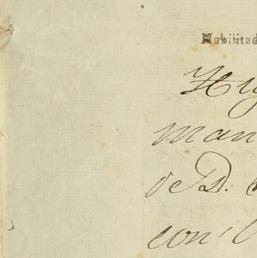 Habilitad
Hij
man
de D.
con